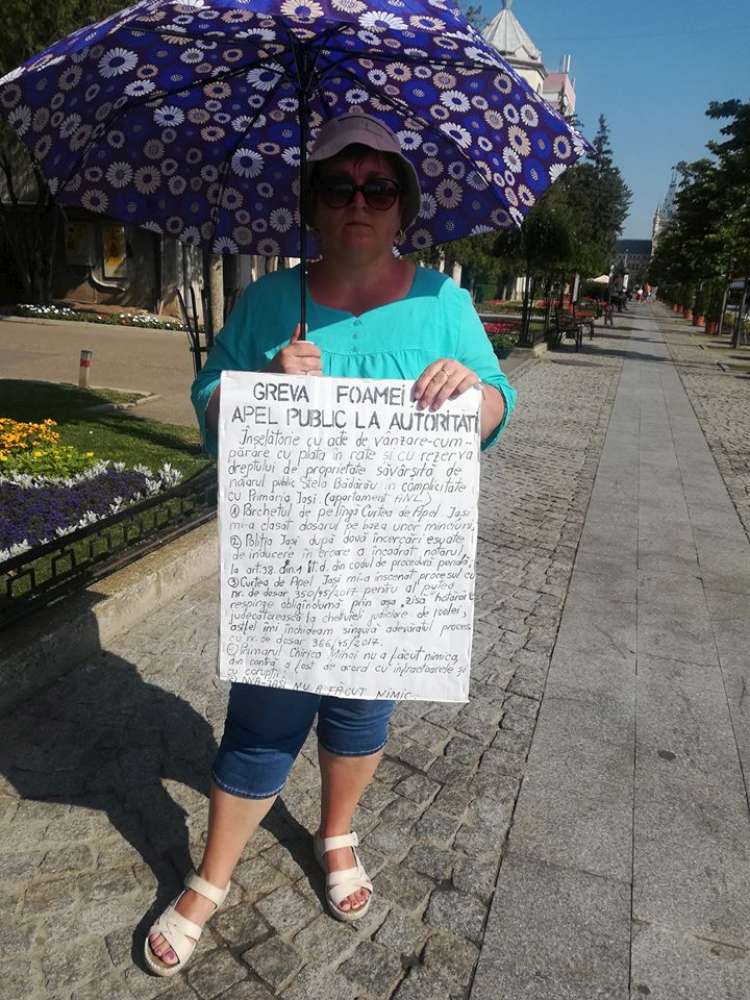 GREVA FOAMEI!
APEL PUBLIC LA AUTORITATI
Înșelătorie cu acte de vânzare-cum-
părare cu plata în rate și cu rezerva
dreptului de proprietate săvârșită de
notarul public Stela Bădărău în complicitate
cu Primăria Iași (apartament ANL)
① Parchetul de pe lîngă Curtea de Apel Iași
mi-a clasat dosarul pe baza unor minciuni,
② Poliția Iași după două încercări eșuate
de inducere în eroare a încadrat notarul
la art. 38. alin. 1 lt. d. din codul de procedură penală,
③ Curtea de Apel Iași mi-a înscenat procesul cu
nr. de dosar 350/45/2017 pentru al putea
respinge obligîndumă prin așa zisa hotărâre
judecătorească la cheltuieli judiciare de 100 lei,
astfel îmi închideam singură adevăratul proces
cu nr. de dosar 366/45/2017.
Primarul Chirica Mihai nu a făcut nimica,
din contră a fost de acord cu infractoarele și
cu corupții
IAȘI NU A FĂCUT NIMIC